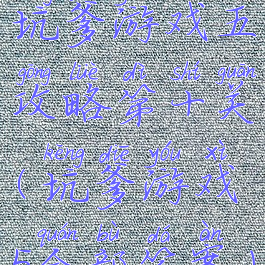 坑爹游戏五
gōng lüè dì shí guān
攻略第十关
kēng diē yóu xì
(坑爹游戏
quán bù dá àn
5全部答案)